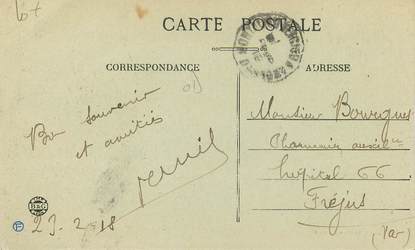 CARTE POSTALE
CORRESPONDANCE
ADRESSE
Bon souvenir
et amitiés
23-2-18
B&G
Monsieur Bourgues
Pharmacien auxil
hôpital 66
Fréjus
(Var)